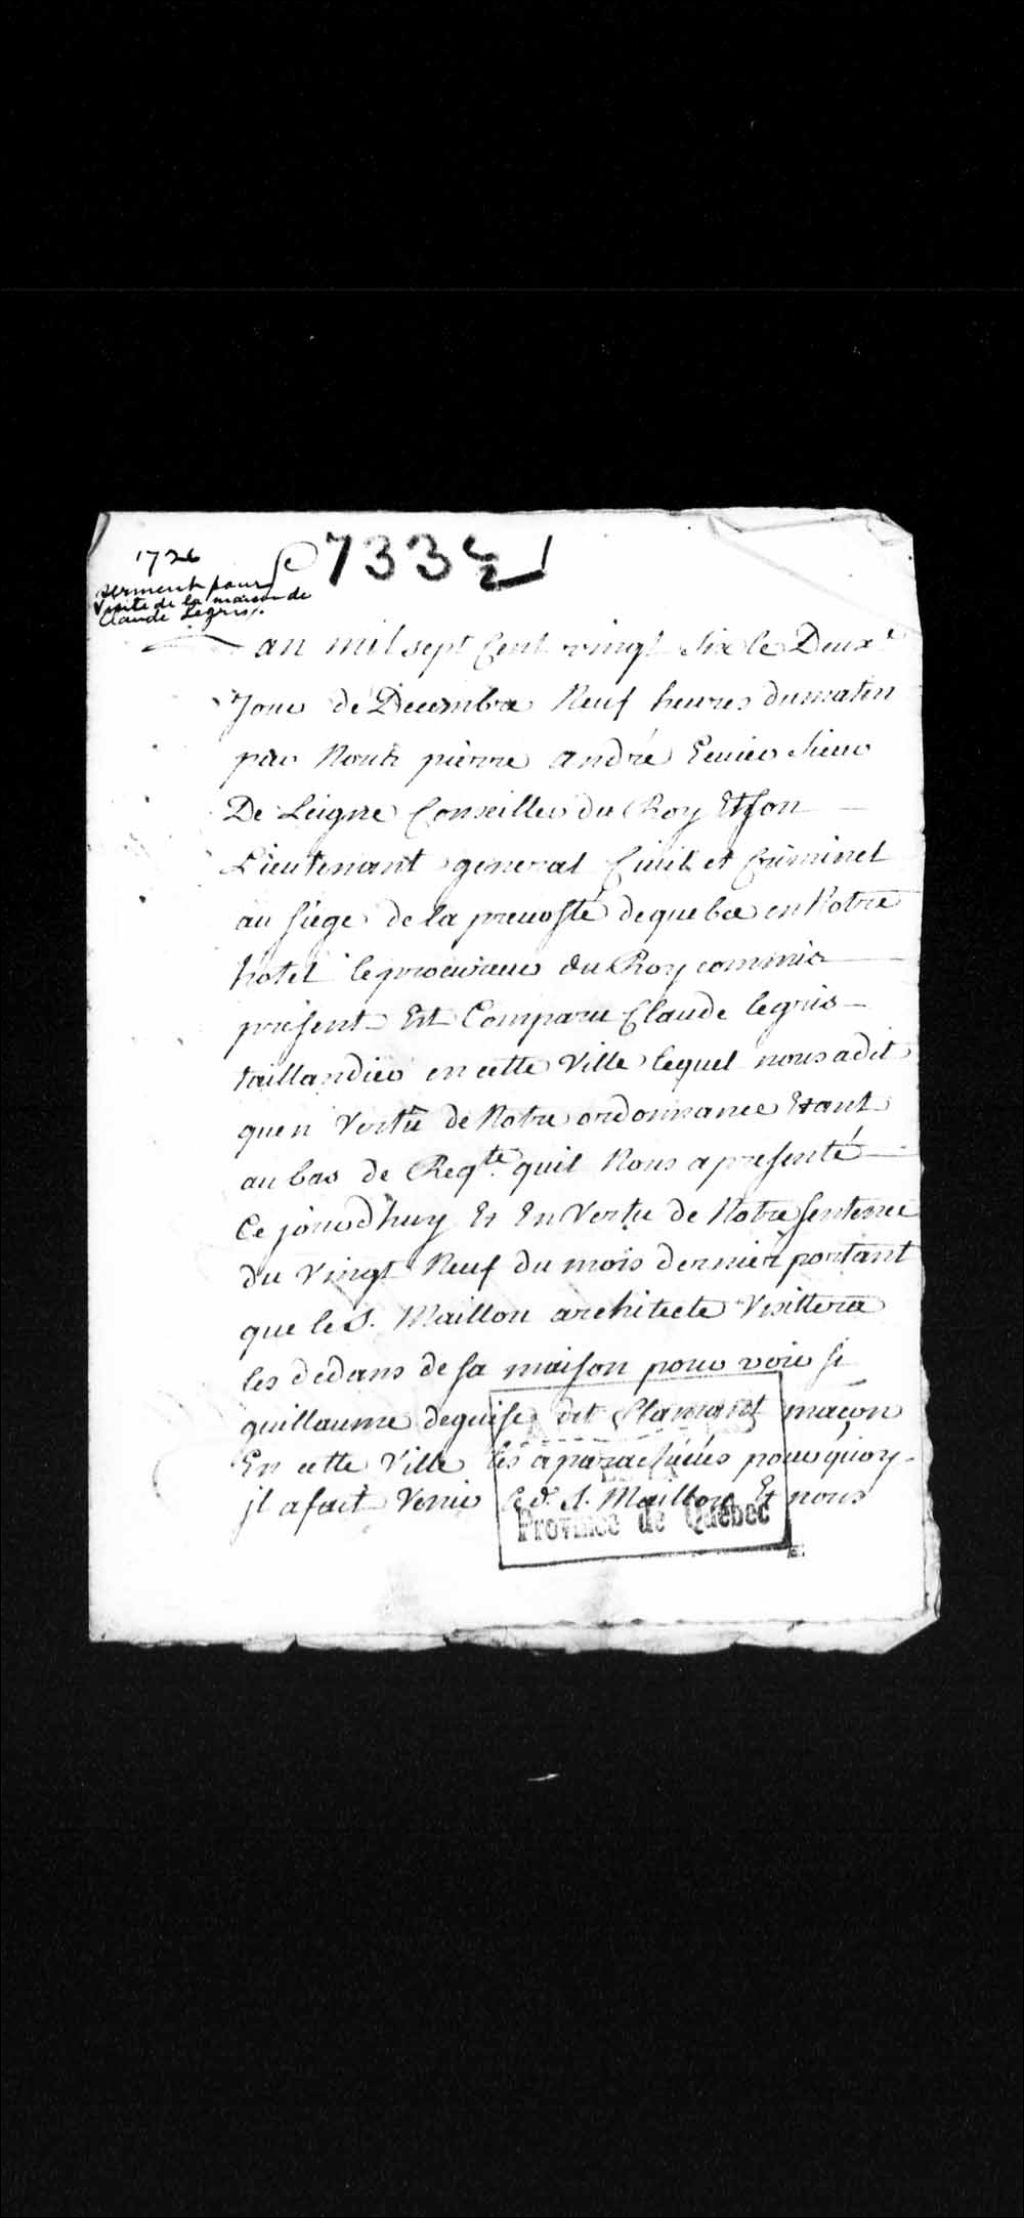 1726
733 1/2
serment pour
Visite de la maison de
Claude Legris.
Lan mil sept Cent vingt six le Deux.e
Jour de Decembre Neuf heures du matin
par Nous pierre andré Leuier sieur
De Leigne Conseiller du Roy Et son
Lieutenant general Ciuil et Criminel
au siege de la preuosté de quebec en Notre
hotel le procureur du Roy commis
present Est Comparu Claude legris
taillandier en cette Ville lequel nous a dit
quen Vertu de Notre ordonnance Etant
au bas de Req.te quil Nous a presenté
Ce jourd'huy Et En Vertu de Notre sentence
du Vingt Neuf du mois dernier portant
que le S. Maillou architecte Visittera
les dedans de sa maison pour voir si
guillaume deguise dit flamant maçon
En cette Ville les a parachéués pourquoy
jl a fait Venir le d. S. Maillou Et nous
Province de Québec